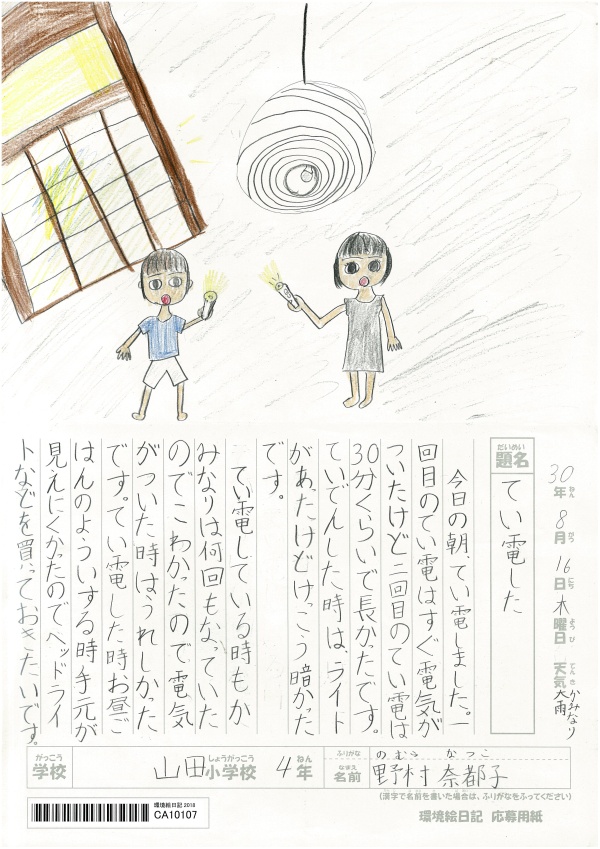 30年8月16日木曜日 天気かみなり大雨
ねん がつ にち よう び てん き
だいめい
題名
てい電した
今日の朝、てい電しました。一
回目のてい電はすぐ電気が
ついたけど二回目のてい電は
30分くらいで長かったです。
ていでんした時は、ライト
があったけどけっこう暗かった
です。
てい電している時もか
みなりは何回もなっていた
のでこわかったので、電気
がついた時はうれしかった
です。てい電した時お昼ご
はんのよういする時手元が
見えにくかったのでヘッドライ
トなどを買っておきたいです。
がっこう しょうがっこう ねん
学校 山田小学校 4年
ふりがな のむら なつこ
なまえ
名前 野村 奈都子
(漢字で名前を書いた場合は、ふりがなをふってください)
環境絵日記 2018
CA10107
環境絵日記 応募用紙